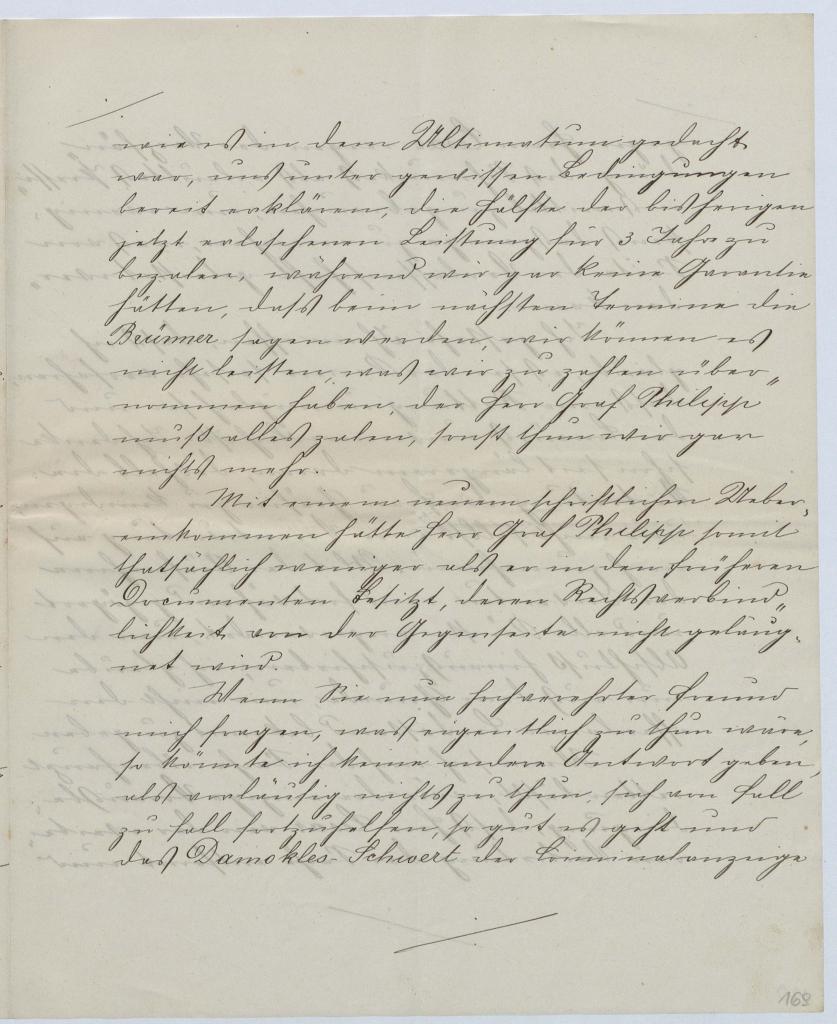 wie es in dem Ultimatum gedacht
war, uns unter gewissen Bedingungen
bereit erklären, die Hälfte der bisherigen
jetzt erloschenen Leistung für 3 Jahre zu
bezalen, während wir gar keine Garantie
hätten, dass beim nächsten Termine die
Brünner sagen werden, wir können es
nicht leisten, was wir zu zahlen über„
nommen haben, der Herr Graf Philipp
muß alles zalen, sonst thun wir gar
nichts mehr.
Mit einem neuem schriftlichen Ueber„
einkommen hätte Herr Graf Philipp somit
thatsächlich weniger als er in den früheren
Documenten besitzt, deren Rechtsverbind„
lichkeit von der Gegenseite nicht geläug„
net wird.
Wenn Sie nun hochverehrter Freund
mich fragen, was eigentlich zu thun wäre,
so könnte ich keine andere Antwort geben,
als vorläufig nichts zu thun, sich von Fall
zu Fall fortzuhelfen, so gut es geht und
das Damokles-Schwert der Criminalanzeige
168